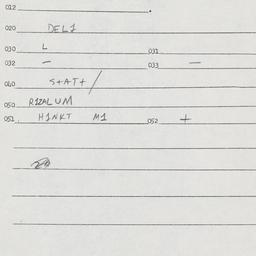 012 .
020 DEL1
030 L 031
032 - 033 -
040 S+AT+/
050 R1ZALUM
051 H1NKT M1 052 +